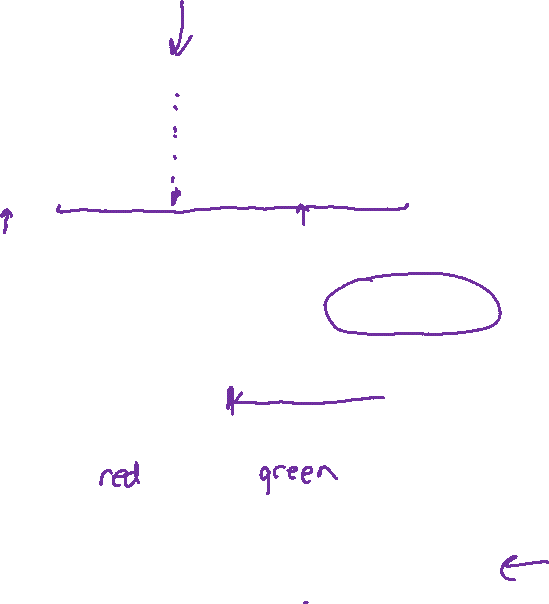 red green